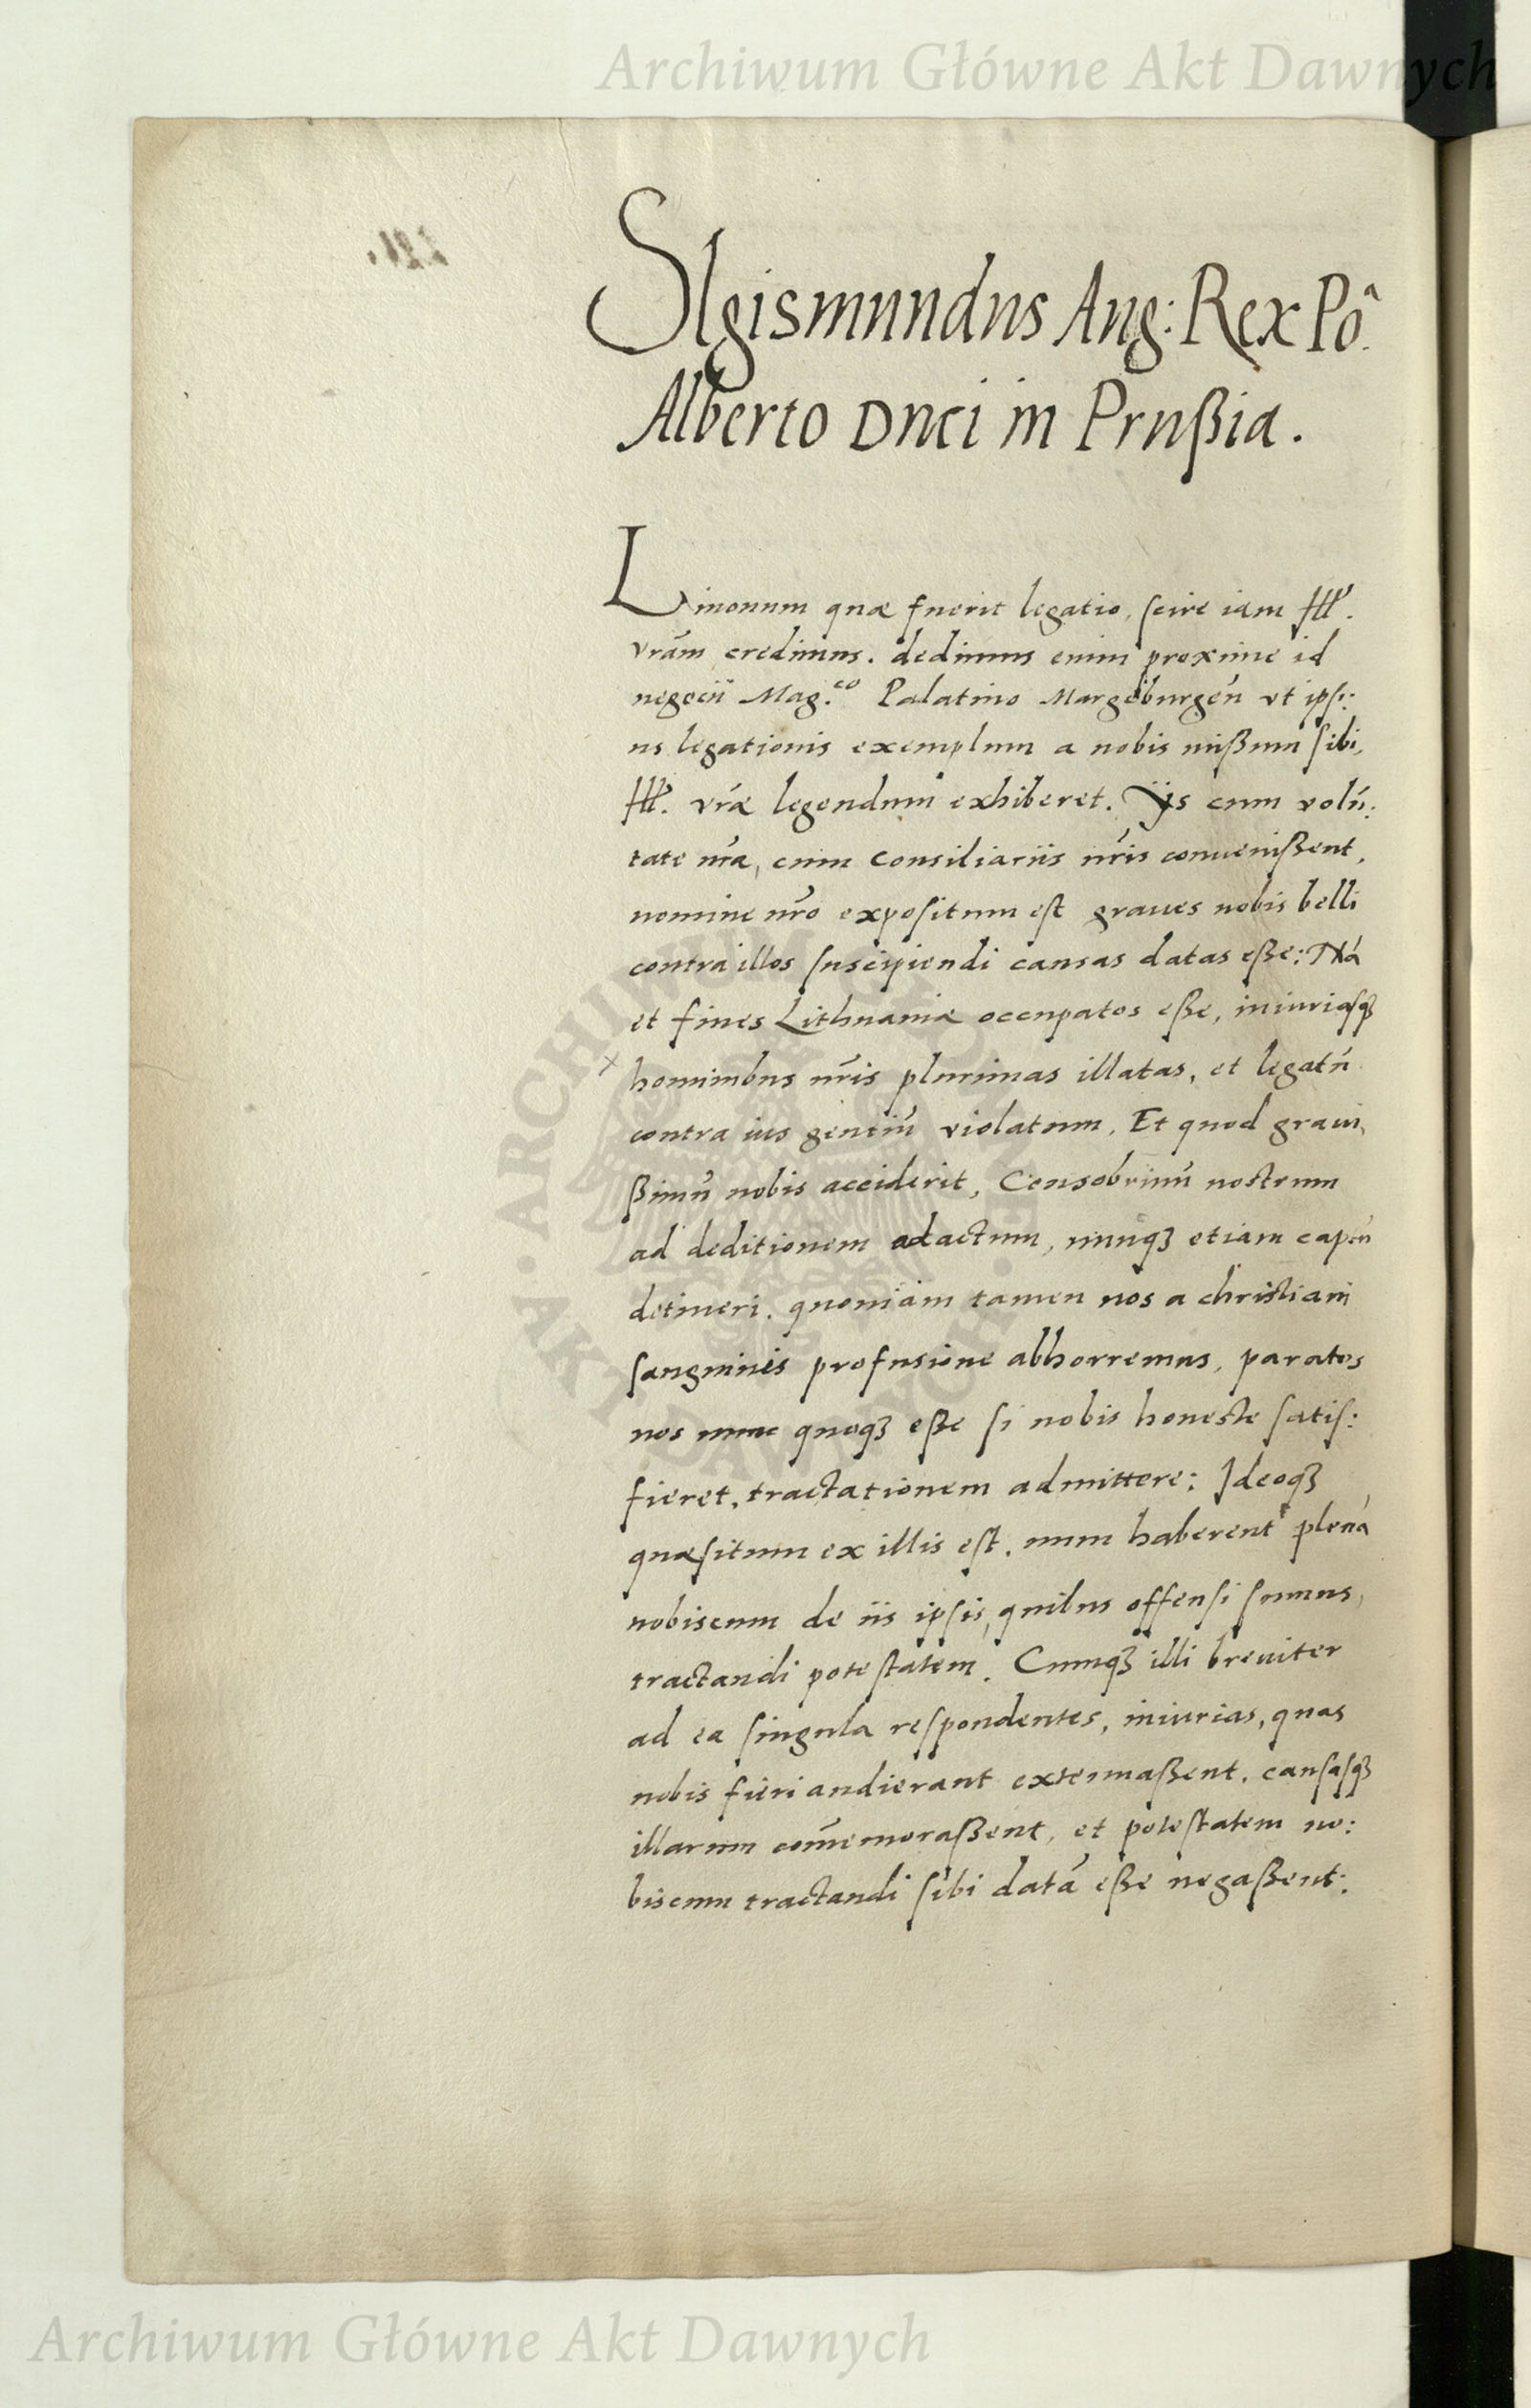 Archiwum Główne Akt Dawnych
SIgismundus Aug: Rex Pô.
Alberto Duci in Prußia.
Liuonum quæ fuerit legatio, scire iam Illᵐ.
vrãm credimus. dedimus enim proxime id
negocii Mag.co Palatino Margeburgeñ vt ipsi:
us legationis exemplum a nobis mißum sibi,
Ill. vræ legendum exhiberet. Ijs cum volũ:
tate nra, cum Consiliariis nris conuenißent,
nomine nro expositum est graues nobis belli
contra illos suscipiendi causas datas eße: Nã
et fines Lithuaniæ occupatos eße, iniuriasqꝫ
hominibus nris plurimas illatas, et legatũ
contra ius gentiũ violatum, Et quod graui,
ßimũ nobis acciderit, Consobrinũ nostrum
ad deditionem adactum, nunqꝫ etiam captũ
detineri. quoniam tamen nos a christiani
sanguinis profusione abhorremus, paratos
nos nunc quoqꝫ eße si nobis honeste satis:
fieret, tractationem admittere: Ideoqꝫ
quæsitum ex illis est, num haberent plenã
nobiscum de iis ipsis, quibus offensi sumus,
tractandi potestatem. Cumqꝫ illi breuiter
ad ea singula respondentes, iniurias, quas
nobis fieri audierant extenuaßent, causasqꝫ
illarum com̃emoraßent, et potestatem no:
biscum tractandi sibi datã eße negaßent:
ARCHIWUM GŁÓWNE AKT DAWNYCH
Archiwum Główne Akt Dawnych